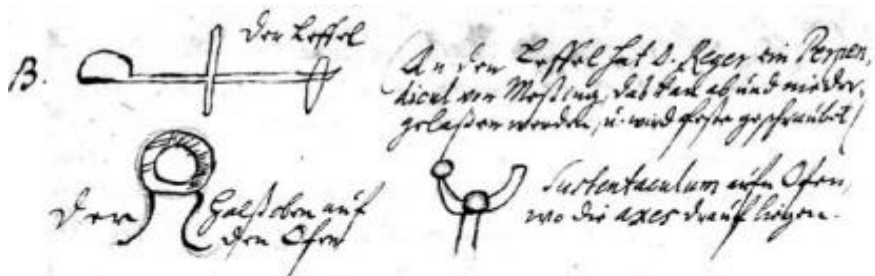 B.
der Leffel
An dem Leffel hat D. Reger ein Perpen,
dicul von Meßing, das kan ab und nieder,
gelaßen werden, u. wird feste geschraubet /
der Halß oben auf
den Ofen
Sustentaculum aufn Ofen,
wo die axes drauf liegen.